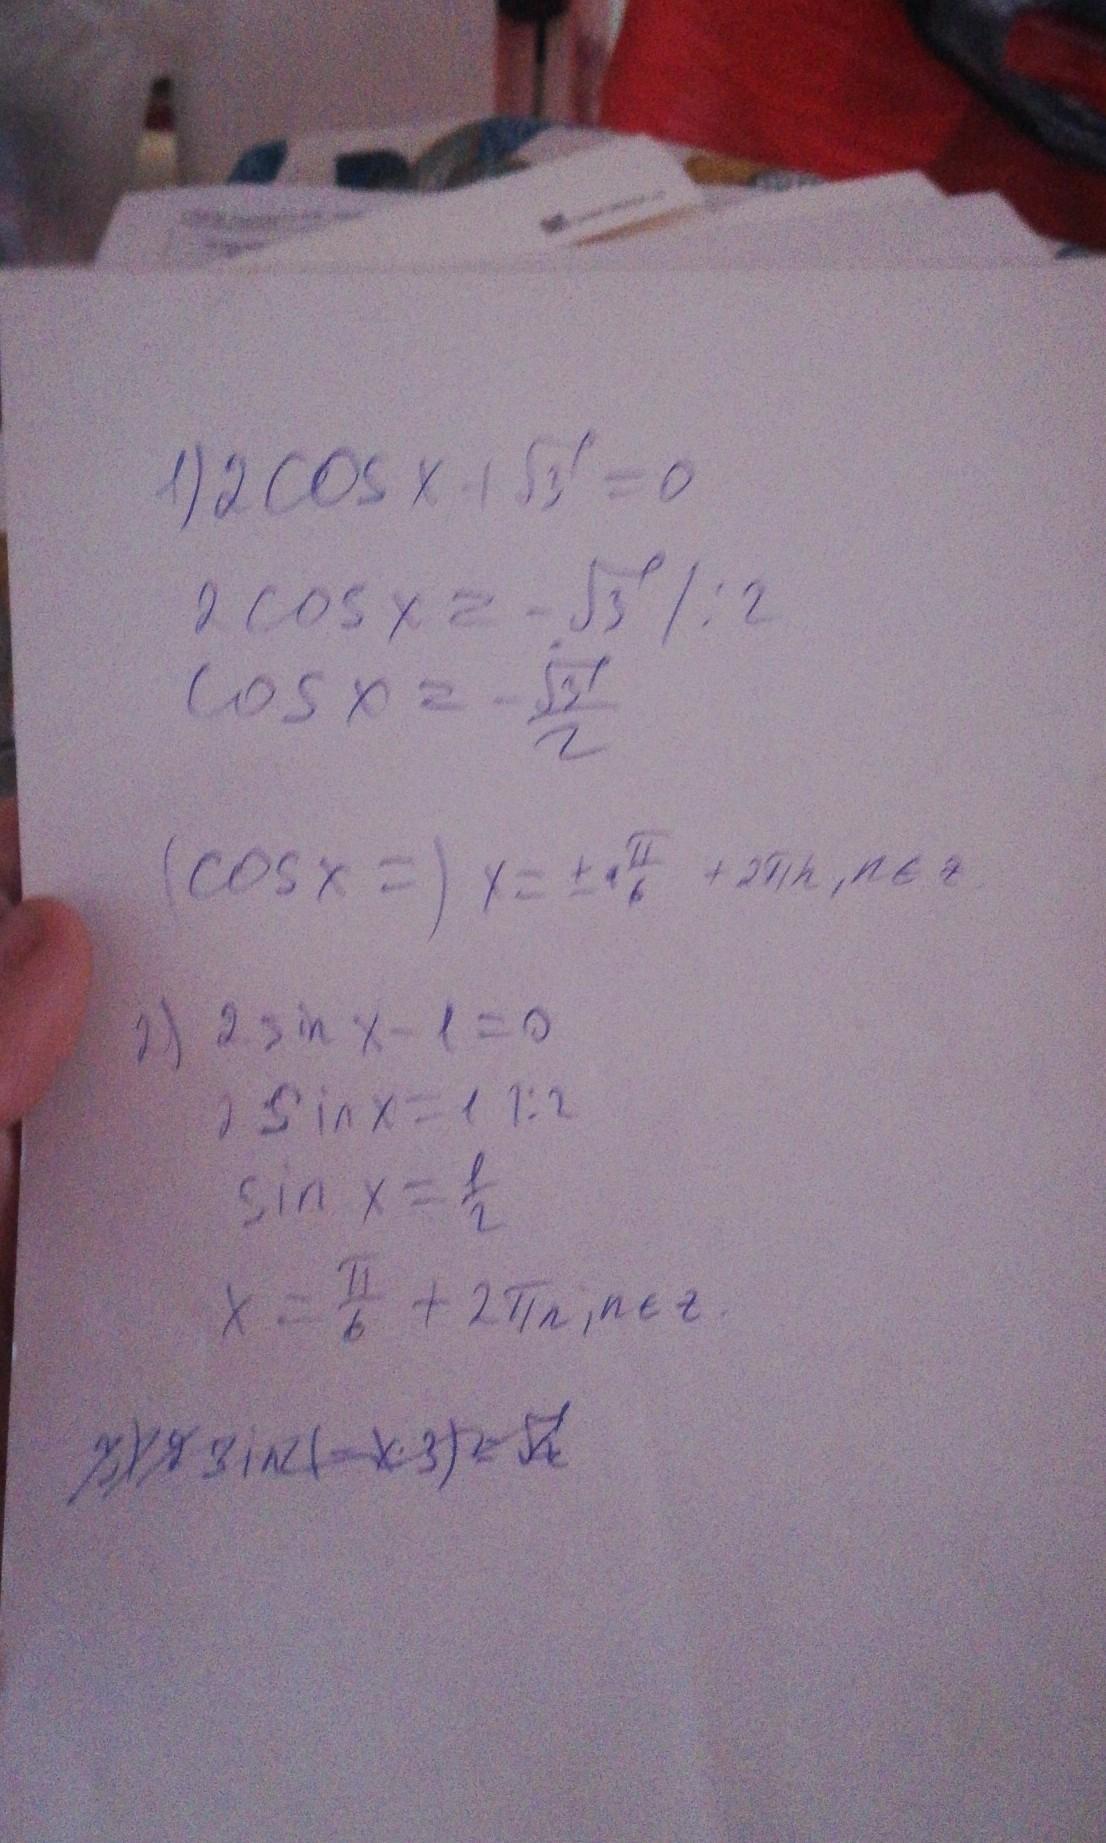 1) 2 cos x + √3 = 0
2 cos x = - √3 / : 2
cos x = - √3/2
(cos x =) x = ± π/6 + 2πn, n ∈ z.
2) 2 sin x - 1 = 0
2 sin x = 1 / : 2
sin x = 1/2
x = π/6 + 2πn, n ∈ z.